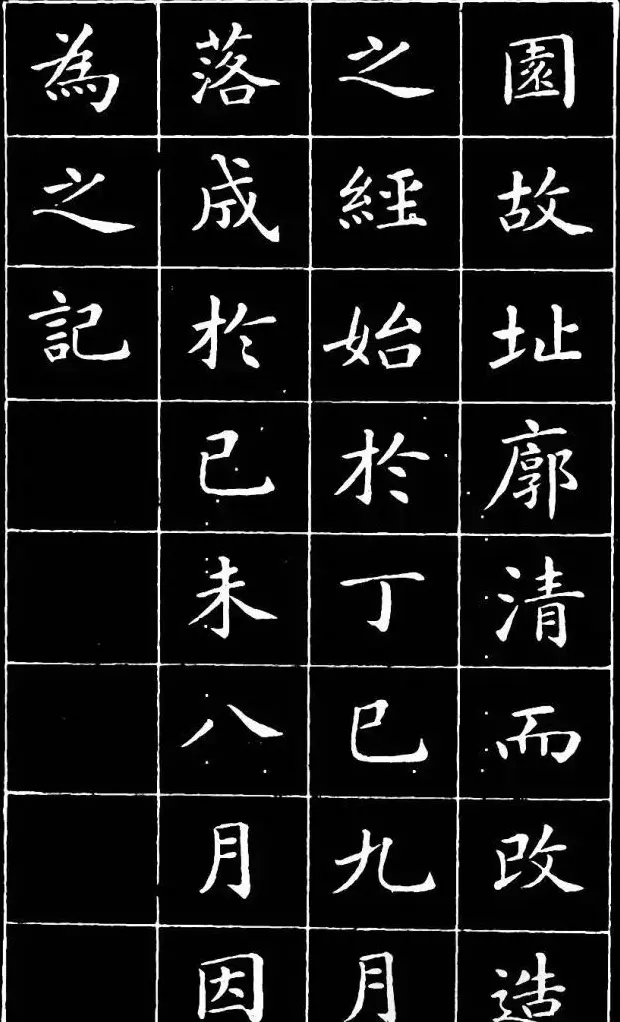 園故址廓清而改造
之經始於丁巳九月
落成於已未八月因
為之記